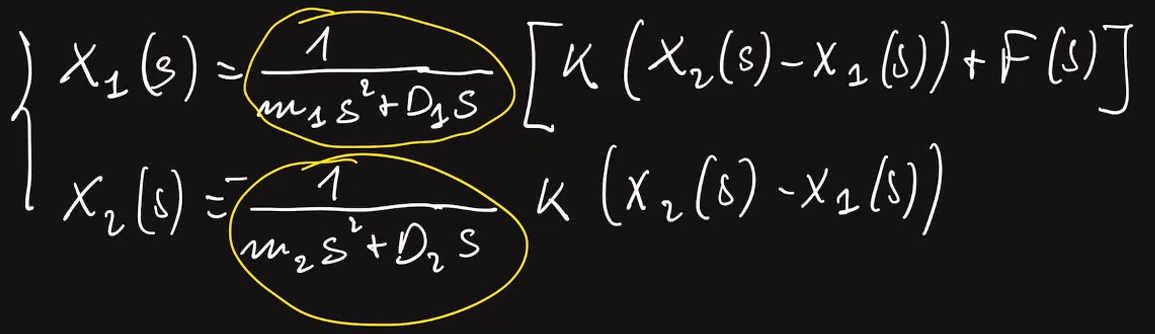 X₁(s) = 1/(m₁s²+D₁s) [K(X₂(s)-X₁(s))+F(s)]
X₂(s) = -1/(m₂s²+D₂s) K(X₂(s)-X₁(s))